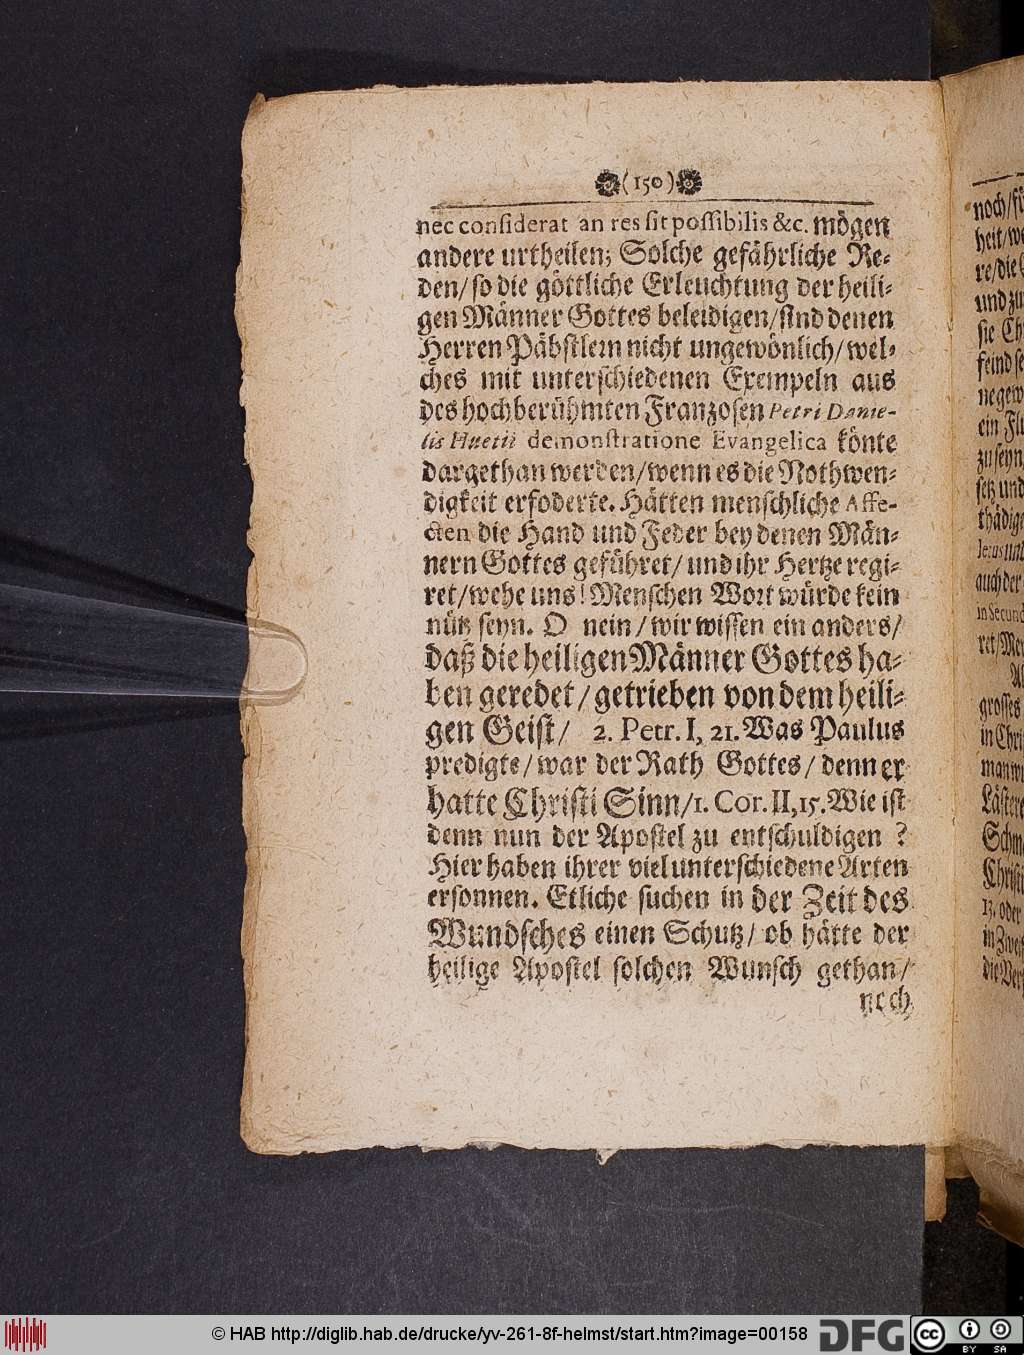 (150)
nec considerat an res sit possibilis &c. mögen
andere urtheilen; Solche gefährliche Re-
den/ so die göttliche Erleuchtung der heili-
gen Männer Gottes beleidigen/ sind denen
Herren Päbstlern nicht ungewönlich/ wel-
ches mit unterschiedenen Exempeln aus
des hochberühmten Franzosen Petri Danie-
lis Huetii demonstratione Evangelica könte
dargethan werden/ wenn es die Nothwen-
digkeit erfoderte. Hätten menschliche Affe-
cten die Hand und Feder bey denen Män-
nern Gottes geführet/ und ihr Hertze regi-
ret/ wehe uns! Menschen Wort würde kein
nütz seyn. O nein/ wir wissen ein anders/
daß die heiligen Männer Gottes ha-
ben geredet/ getrieben von dem heili-
gen Geist/ 2. Petr. I, 21. Was Paulus
predigte/ war der Rath Gottes/ denn er
hatte Christi Sinn/ 1. Cor. II, 15. Wie ist
denn nun der Apostel zu entschuldigen ?
Hier haben ihrer viel unterschiedene Arten
ersonnen. Etliche suchen in der Zeit des
Wundsches einen Schutz/ ob hätte der
heilige Apostel solchen Wunsch gethan/
noch
© HAB http://diglib.hab.de/drucke/yv-261-8f-helmst/start.htm?image=00158
DFG
cc
BY SA